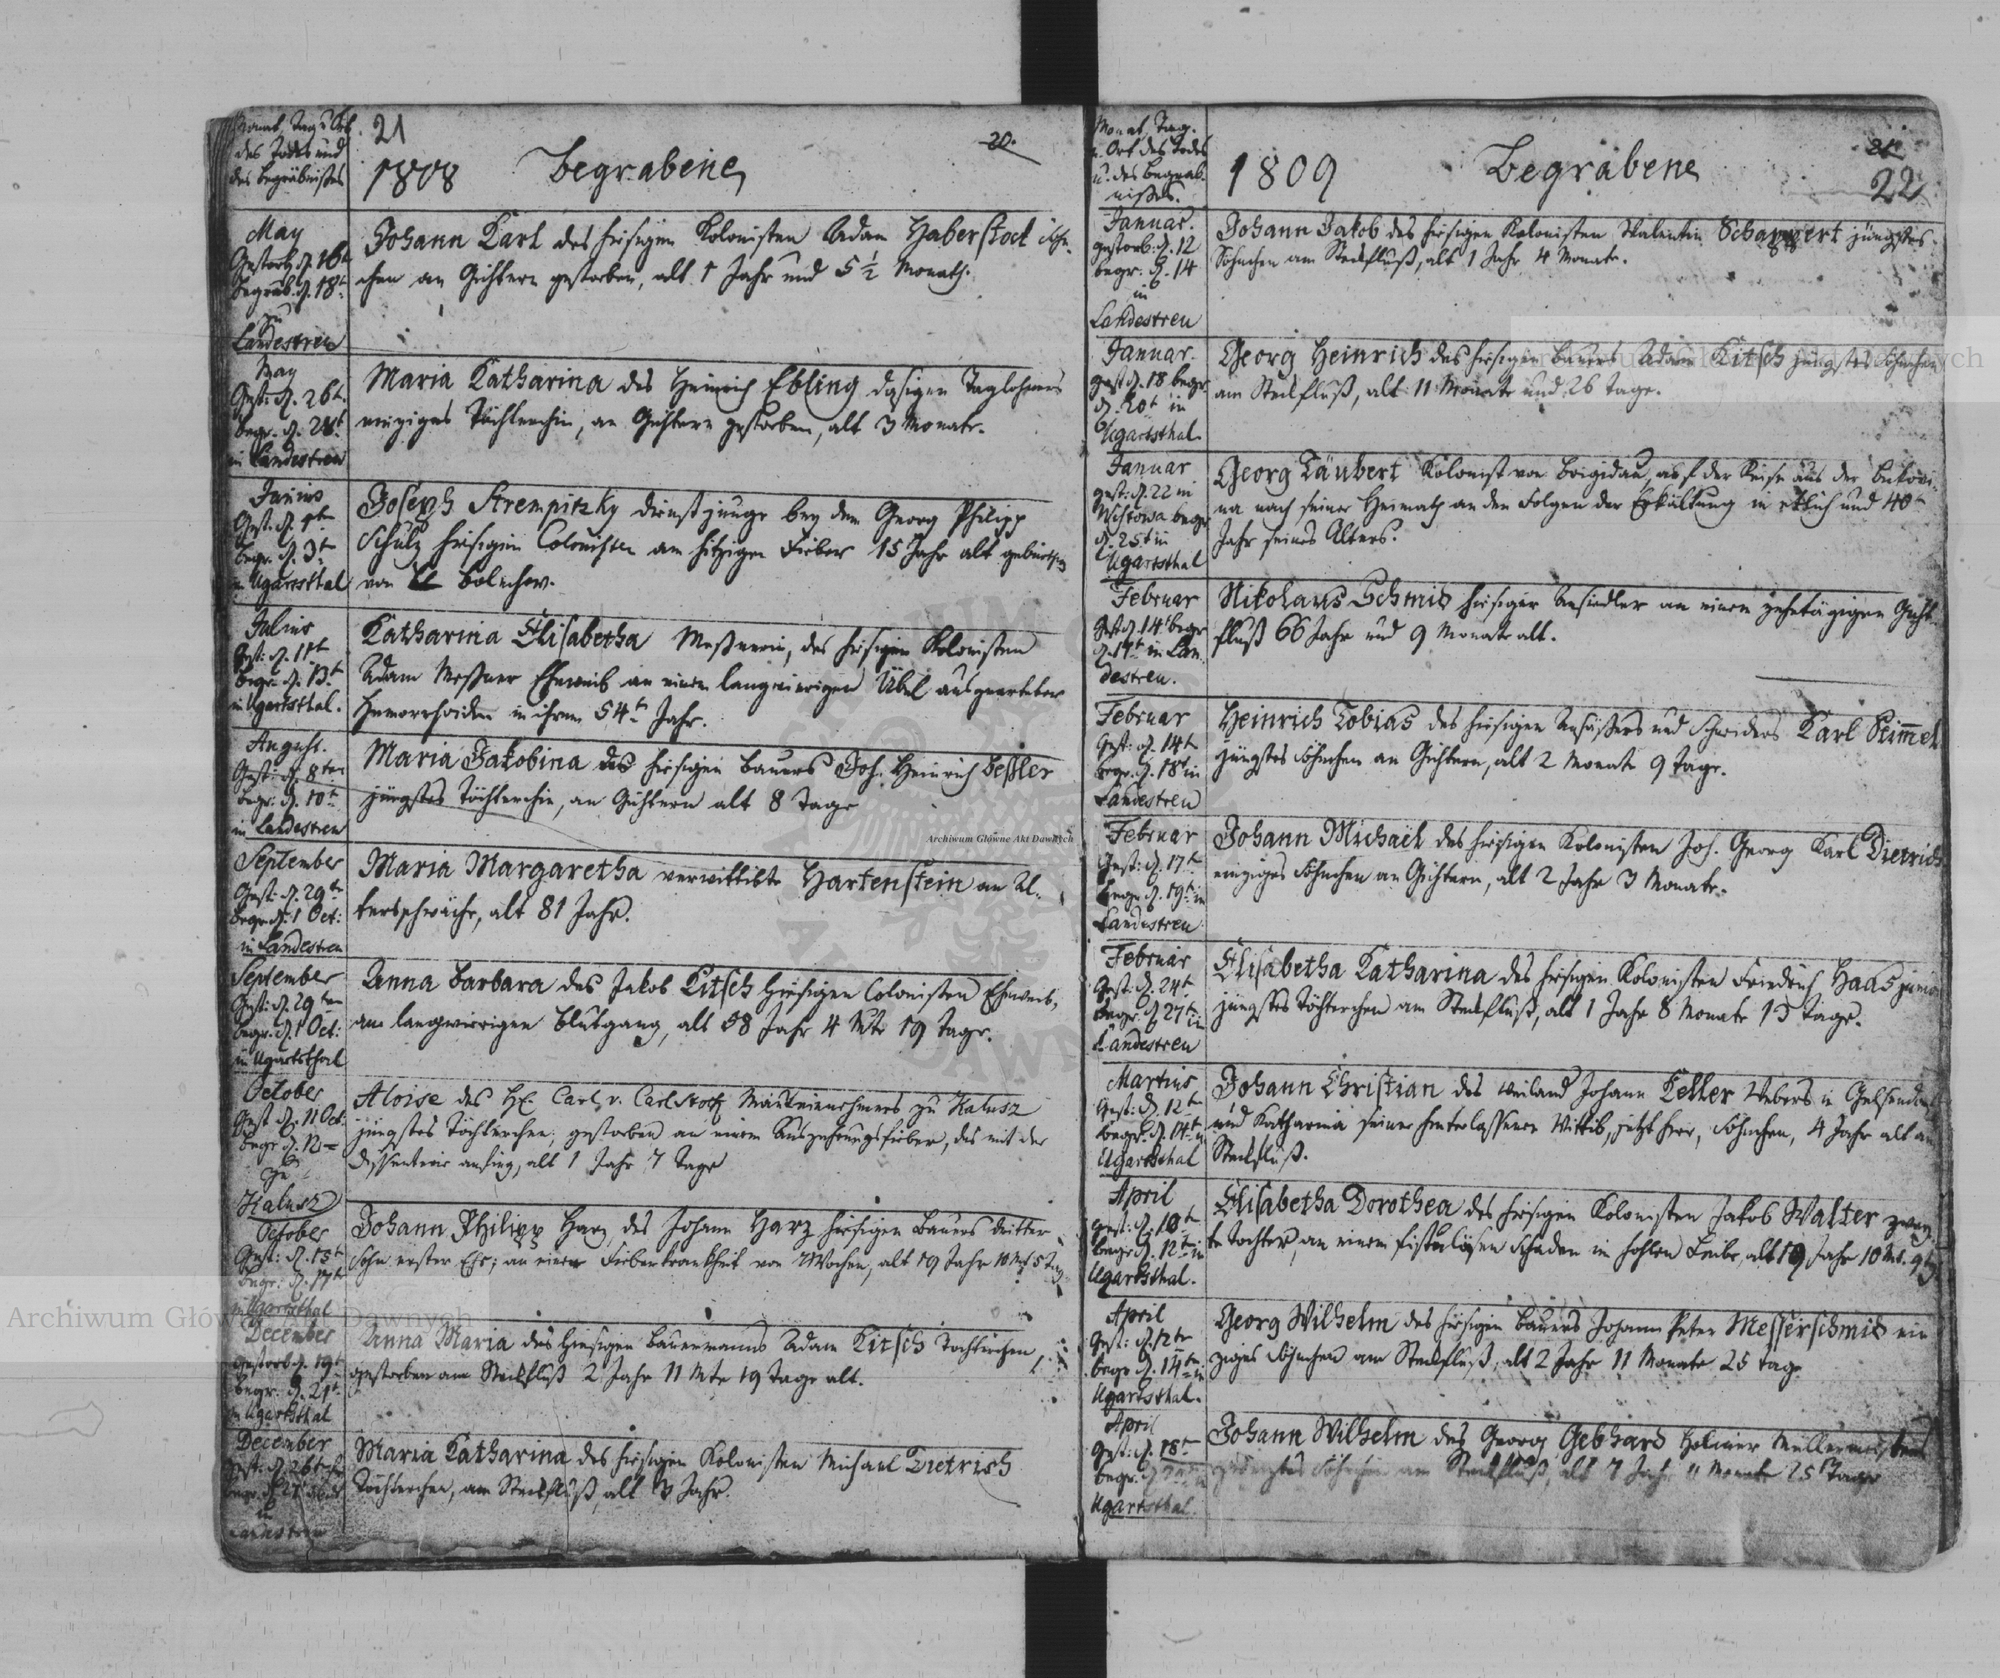 Monat, Tag u Ort
des Todes und
des Begräbnißes
21
1808 Begrabene
20.
May
Gestorb. d. 16t
Begrab. d. 18t
zu
Landestreu
Johann Karl des hiesigen Kolonisten Adam Haberstock Söhn-
chen an Gichtern gestorben, alt 1 Jahr und 5 ½ Monath.
May
Gest: d. 26t
begr. d. 28t
in Landestreu
Maria Katharina des Heinrich Ebling dasigen Taglöhners
einziges Töchterchen, an Gichtern gestorben, alt 3 Monate.
Junius
Gest: d. 1ten
begr. d. 3t
in Ugartsthal
Joseph Strempitzky Dienstjunge bey dem Georg Philipp
Schulz hiesigen Colonisten am hitzigen Fieber 15 Jahr alt gebürtig
von Bolechow.
Julius
Gest: d. 11t
begr: d. 13t
in Ugartsthal.
Katharina Elisabetha Meßnerin, des hiesigen Kolonisten
Adam Meßner Eheweib an einem langwierigen Übel ausgearteter
Hemorrhoiden in ihrem 54t Jahr.
August.
Gest: d. 8ten
begr: d. 10t
in Landestreu
Maria Jakobina des hiesigen Bauers Joh. Heinrich Beßler
jüngstes Töchterchen, an Gichtern alt 8 Tage
September
Gest: d. 29ten
begr. d. 1 Oct:
in Landestreu
Maria Margaretha verwittibte Hartenstein an Al-
tersschwäche, alt 81 Jahr.
September
Gest: d. 29ten
begr. d. 1 Oct:
in Ugartsthal
Anna Barbara des Jakob Kitsch hiesigen Colonisten Eheweib,
am langwierigen Blutgang, alt 58 Jahr 4 Mte 19 Tage.
October
Gest d. 11 Oct.
begr d. 12
zu
Kalusz
Aloise des H. Carl v. Carlstock Mauteinnehmers zu Kalusz
jüngstes Töchterchen, gestorben an einem Auszehrungsfieber, das mit der
Dissenterie anfing, alt 1 Jahr 7 Tage
October
Gest: d. 15t
begr: d. 17t
in Ugartsthal
Johann Philipp Harz, des Johann Harz hiesigen Bauers dritter
Sohn erster Ehe, an einer Fieberkrankheit von 7 Wochen, alt 19 Jahr 10 Mt 5 Tag
December
gestorb. d. 19t
begr. d. 21t
in Ugartsthal
Anna Maria des hiesigen Bauermanns Adam Kitsch Töchterchen,
gestorben am Steckfluß 2 Jahr 11 Mte 19 Tage alt.
December
Gest: d. 26t
begr. d. 27
in
Landestreu
Maria Katharina des hiesigen Kolonisten Michael Dietrich
Töchterchen, am Steckfluß, alt Jahr.
Monat, Tag.
u. Ort des Todes
u. des Begräb-
nißes.
1809 Begrabene
21.
22
Januar.
gestorb. d. 12
begr: d. 14
in
Landestreu
Johann Jakob des hiesigen Kolonisten Valentin Schappert jüngstes
Söhnchen am Steckfluß, alt 1 Jahr 4 Monate.
Januar.
gest d. 18 begr
d. 20t in
Ugartsthal.
Georg Heinrich des hiesigen Bauers Adam Kitsch jüngstes Söhnchen
am Steckfluß, alt 11 Monate und 26 Tage.
Januar
gest: d. 22 in
Wistowa begr
d. 25t in
Ugartsthal
Georg Täubert Kolonist von Brigidau, auf der Reise aus der Bukowi-
na nach seiner Heimath an den Folgen der Erkältung in und 40t
Jahr seines Alters.
Februar
Gest d. 14t begr
d. 17t in Lan-
destreu.
Nikolaus Schmid hiesiger Ansiedler an einem zehntägigen Gicht-
fluß 66 Jahr und 9 Monate alt.
Februar
Gest: d. 14t
begr. d. 18t in
Landestreu
Heinrich Tobias des hiesigen Ansäßers und Schneiders Karl Kimmel
jüngstes Söhnchen an Gichtern, alt 2 Monate 9 Tage.
Februar
Gest: d. 17t
begr d. 19t in
Landestreu
Johann Michael des hiesigen Kolonisten Joh. Georg Karl Dietrich
einziges Söhnchen an Gichtern, alt 2 Jahr 3 Monate.
Februar
Gest: d. 24t
begr. d. 27t in
Landestreu
Elisabetha Katharina des hiesigen Kolonisten Friedrich Haas junior
jüngstes Töchterchen am Steckfluß, alt 1 Jahr 8 Monate 13 Tage.
Martius
Gest: d. 12t
begr. d. 14t in
Ugartsthal
Johann Christian des weiland Johann Keller Webers in Gelsendorf
und Katharina seiner hinterlassenen Wittib, jetzt hier, Söhnchen, 4 Jahr alt am
Steckfluß.
April
Gest: d. 10t
begr d. 12t in
Ugartsthal.
Elisabetha Dorothea des hiesigen Kolonisten Jakob Walter zwey-
te Tochter, an einem fistulösen Schaden im hohlen Leibe, alt 19 Jahr 10 Mt. 9 Tg
April
Gest: d. 12ten
begr d. 14ten in
Ugartsthal.
Georg Wilhelm des hiesigen Bauers Johann Peter Messerschmid ein-
ziges Söhnchen am Steckfluß, alt 2 Jahr 11 Monate 25 Tage
April
Gest: d. 18t
begr. d.
Ugartsthal.
Johann Wilhelm des Georg Gebhard Holmer Müllermeisters
Söhnchen am Steckfluß, alt 7 Jahr 11 Monate 25 Tage
Archiwum Główne Akt Dawnych
Archiwum Główne Akt Dawnych